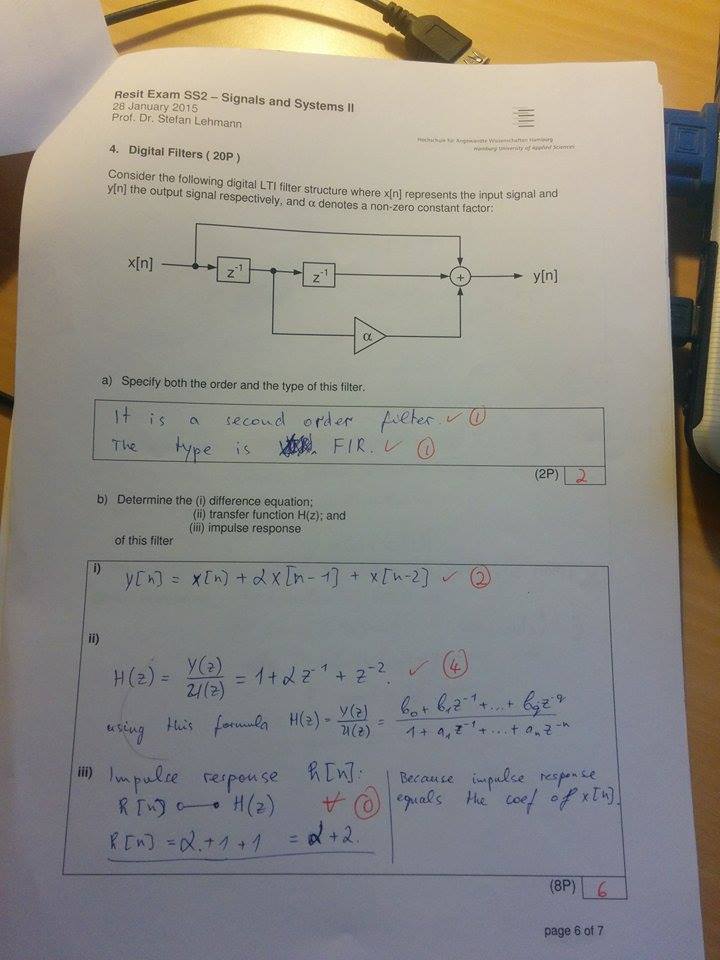 Resit Exam SS2 – Signals and Systems II
28 January 2015
Prof. Dr. Stefan Lehmann
Hochschule für Angewandte Wissenschaften Hamburg
Hamburg University of Applied Sciences
4. Digital Filters ( 20P )
Consider the following digital LTI filter structure where x[n] represents the input signal and
y[n] the output signal respectively, and α denotes a non-zero constant factor:
x[n] z⁻¹ z⁻¹ + y[n]
α
a) Specify both the order and the type of this filter.
It is a second order filter. ✓ ①
The type is FIR. ✓ ①
(2P) 2
b) Determine the (i) difference equation;
(ii) transfer function H(z); and
(iii) impulse response
of this filter
i) y[n] = x[n] + αx[n-1] + x[n-2] ✓ ②
ii)
H(z) = Y(z)/U(z) = 1 + αz⁻¹ + z⁻². ✓ ④
using this formula H(z) = Y(z)/U(z) = b₀ + b₁z⁻¹ + ... + b_q z^-q / 1 + a₁z⁻¹ + ... + aₙz⁻ⁿ
iii) Impulse response h[n]:
h[n] ○—● H(z) ⓪
h[n] = α + 1 + 1 = α + 2.
Because impulse response
equals the coef of x[n].
(8P) 6
page 6 of 7